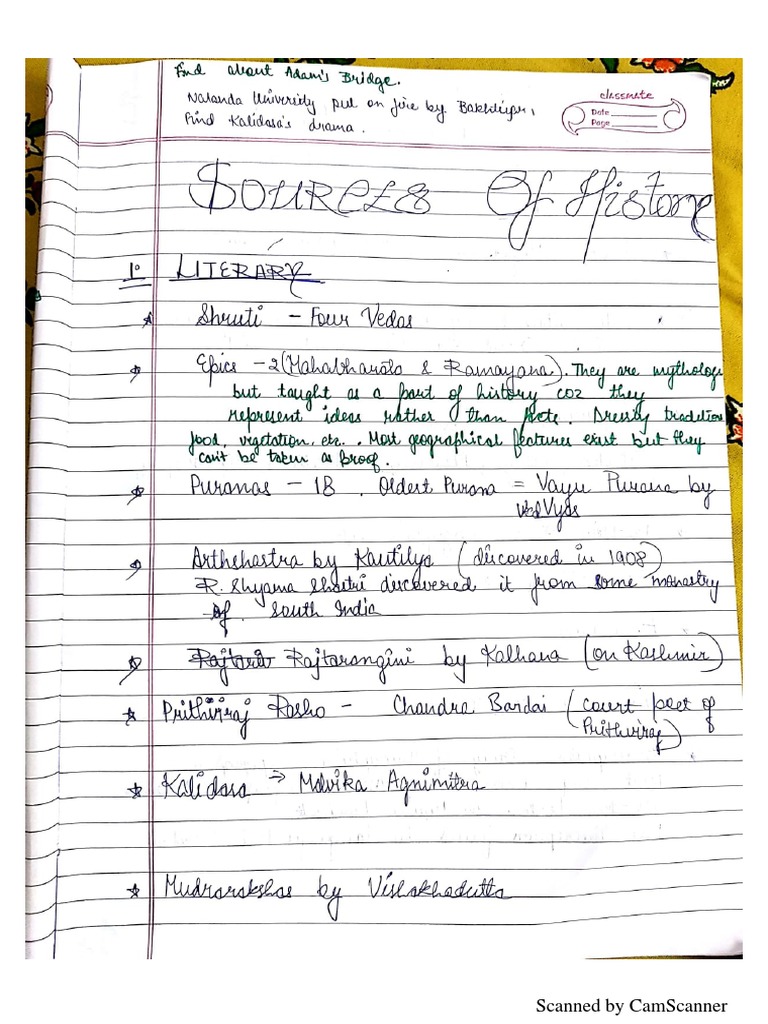 Find about Adam's Bridge.
Nalanda University put on fire by
Find Kalidasa's drama.
classmate
Date
Page
SOURCES Of History
1. LITERARY
Shruti - Four Vedas
Epics - 2 (Mahabharata & Ramayana). They are mythology
but taught as a part of history coz they
represent ideas rather than facts. Dressing tradition
food, vegetation, etc.. Most geographical features exist but they
can't be taken as proof.
Puranas - 18. Oldest Purana = Vayu Purana by
Ved Vyas
Arthshastra by Kautilya (discovered in 1908)
R. Shyama Shastri discovered it from some monastry
of South India
Rajtarangini by Kalhana (on Kashmir)
Prithviraj Rasho - Chandra Bardai (court poet of
Prithviraj)
Kalidasa → Malvika Agnimitra
Mudrarakshas by Vishakhadutta
Scanned by CamScanner